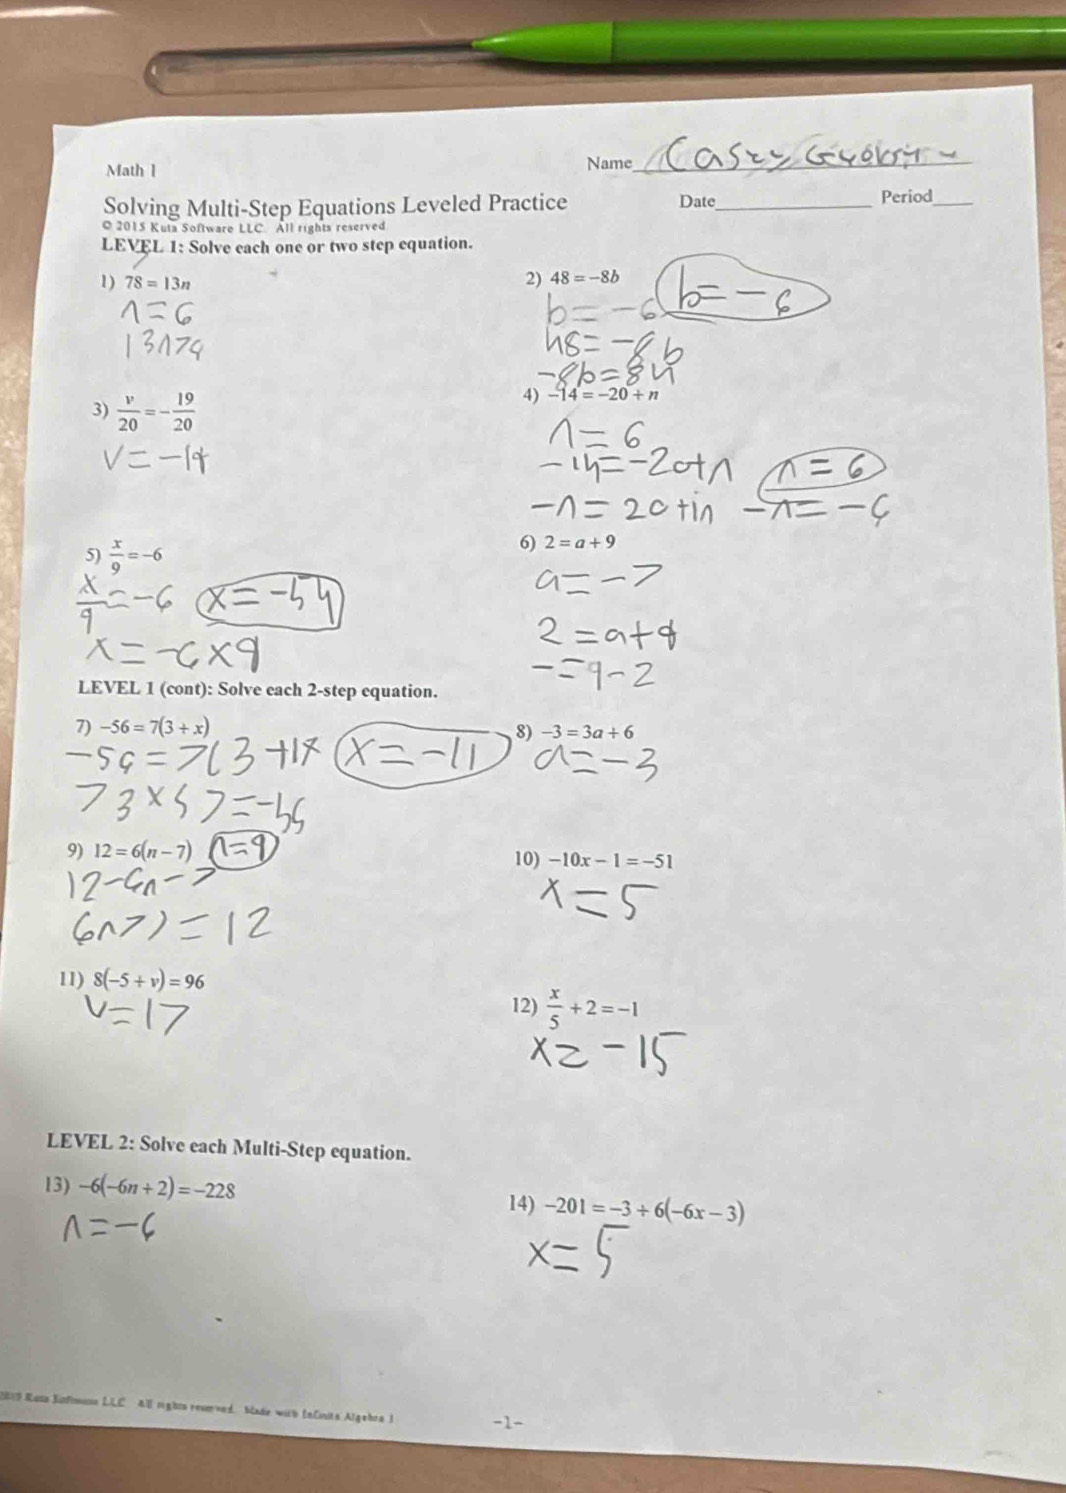 Math 1
Name
Solving Multi-Step Equations Leveled Practice
Date Period
© 2015 Kuta Software LLC. All rights reserved.
LEVEL 1: Solve each one or two step equation.
1) 78 = 13n
n = 6
2) 48 = -8b
b = -6
b = -6
48 = -8b
3) v/20 = -19/20
4) -14 = -20 + n
n = 6
-14 = -20+n
n = 6
5) x/9 = -6
x/9 = -6
x = -54
x = -6 x 9
6) 2 = a + 9
a = -7
2 = a + 9
- = 9 - 2
LEVEL 1 (cont): Solve each 2-step equation.
7) -56 = 7(3 + x)
x = -11
8) -3 = 3a + 6
a = -3
9) 12 = 6(n - 7)
n = 9
6n7) = 12
10) -10x - 1 = -51
x = 5
11) 8(-5 + v) = 96
v = 17
12) x/5 + 2 = -1
x = -15
LEVEL 2: Solve each Multi-Step equation.
13) -6(-6n + 2) = -228
n = -6
14) -201 = -3 + 6(-6x - 3)
x = 5
2015 Kuta Software LLC. All rights reserved. Made with Infinite Algebra 1
-1-